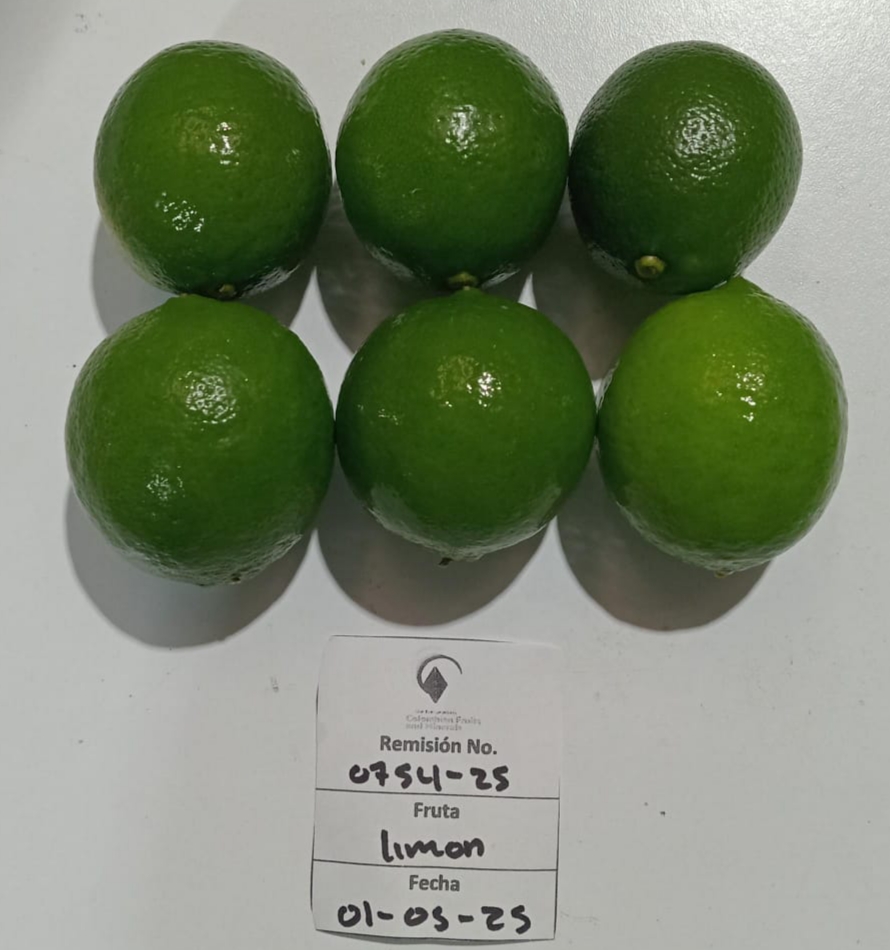 Colombian Fruits
Remisión No.
0754-25
Fruta
limon
Fecha
01-05-25